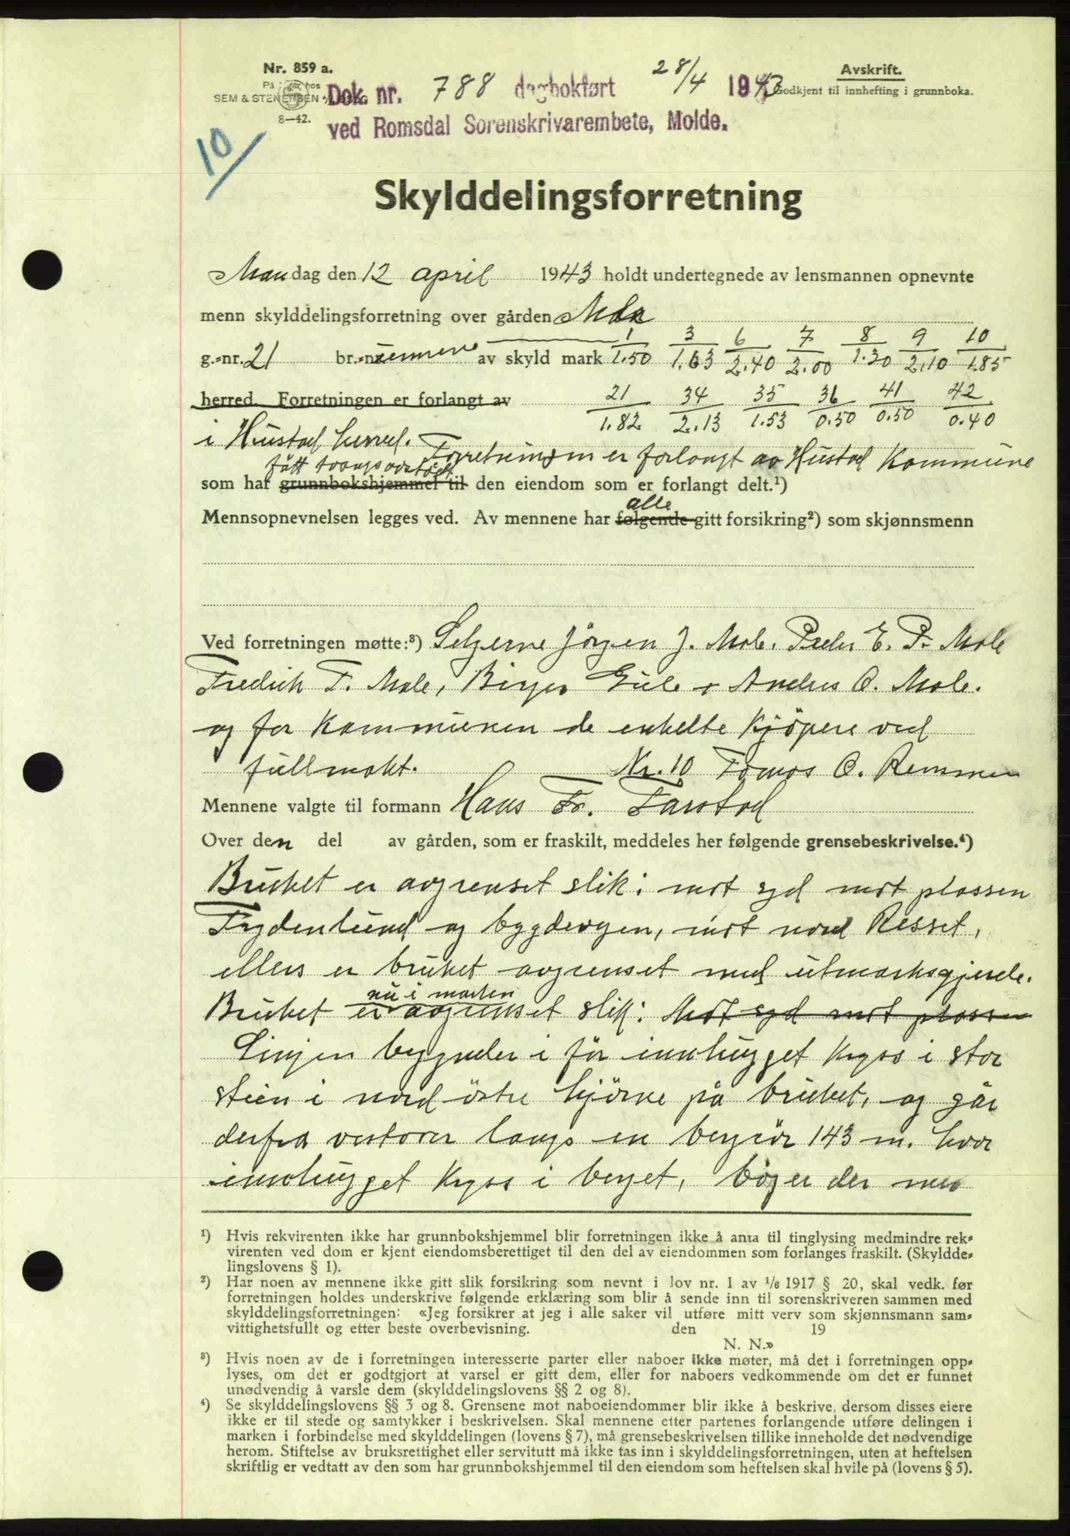 Nr. 859 a.
Avskrift.
SEM & STENERSEN
8-42.
Godkjent til innhefting i grunnboka.
Dok. nr. 788 dagbokført 28/4 1943
ved Romsdal Sorenskrivarembete, Molde.
10
Skylddelingsforretning
Mandag den 12 april 1943 holdt undertegnede av lensmannen opnevnte
menn skylddelingsforretning over gården
1 3 6 7 8 9 10
g.-nr. 21 br.-nr. av skyld mark 1.50 1.63 2.40 2.00 1.30 2.10 1.85
21 34 35 36 41 42
herred. Forretningen er forlangt av 1.82 2.13 1.53 0.50 0.50 0.40
i Hustad herred. Forretningen er forlangt av Hustad Kommune
fått tvangsovertatt
som har grunnbokshjemmel til den eiendom som er forlangt delt.¹)
alle
Mennsopnevnelsen legges ved. Av mennene har følgende gitt forsikring²) som skjønnsmenn
Ved forretningen møtte:³) Selgerne Jörgen J. Mole. Peder E. P. Mole
Fredrik F. Mole, Birger Eide + Anders O. Mole.
og for Kommunen de enkelte kjöpere ved
fullmakt. Nr. 10 Tomas O. Remmen
Mennene valgte til formann Hans Fr. Farstad
Over den del av gården, som er fraskilt, meddeles her følgende grensebeskrivelse.⁴)
Bruket er avgrenset slik: mot syd mot plassen
Frydenlund og bygdevegen, mot nord Resset,
ellers er bruket avgrenset med utmarksgjerde.
nu i marken
Bruket er avgrenset slik: Mot syd mot plassen
Linjen begynder i för innhugget kryss i stor
stein i nord östre hjörne på bruket, og går
derfra vestover langs en bergrör 143 m. hvor
innhugget kryss i berget, böyer der med
¹) Hvis rekvirenten ikke har grunnbokshjemmel blir forretningen ikke å anta til tinglysing medmindre rek-
virenten ved dom er kjent eiendomsberettiget til den del av eiendommen som forlanges fraskilt. (Skyldde-
lingslovens § 1).
²) Har noen av mennene ikke gitt slik forsikring som nevnt i lov nr. 1 av 1/6 1917 § 20, skal vedk. før
forretningen holdes underskrive følgende erklæring som blir å sende inn til sorenskriveren sammen med
skylddelingsforretningen: «Jeg forsikrer at jeg i alle saker vil utføre mitt verv som skjønnsmann sam-
vittighetsfullt og etter beste overbevisning. den 19
N. N.»
³) Hvis noen av de i forretningen interesserte parter eller naboer ikke møter, må det i forretningen opp-
lyses, om det er godtgjort at varsel er gitt dem, eller for naboers vedkommende om det er funnet
unødvendig å varsle dem (skylddelingslovens §§ 2 og 8).
⁴) Se skylddelingslovens §§ 3 og 8. Grensene mot naboeiendommer blir ikke å beskrive, dersom disses eiere
ikke er til stede og samtykker i beskrivelsen. Skal mennene etter partenes forlangende utføre delingen i
marken i forbindelse med skylddelingen (lovens § 7), må grensebeskrivelsen tillike inneholde det nødvendige
herom. Stiftelse av bruksrettighet eller servitutt må ikke tas inn i skylddelingsforretningen, uten at heftelsen
skriftlig er vedtatt av den som har grunnbokshjemmel til den eiendom som heftelsen skal hvile på (lovens § 5).